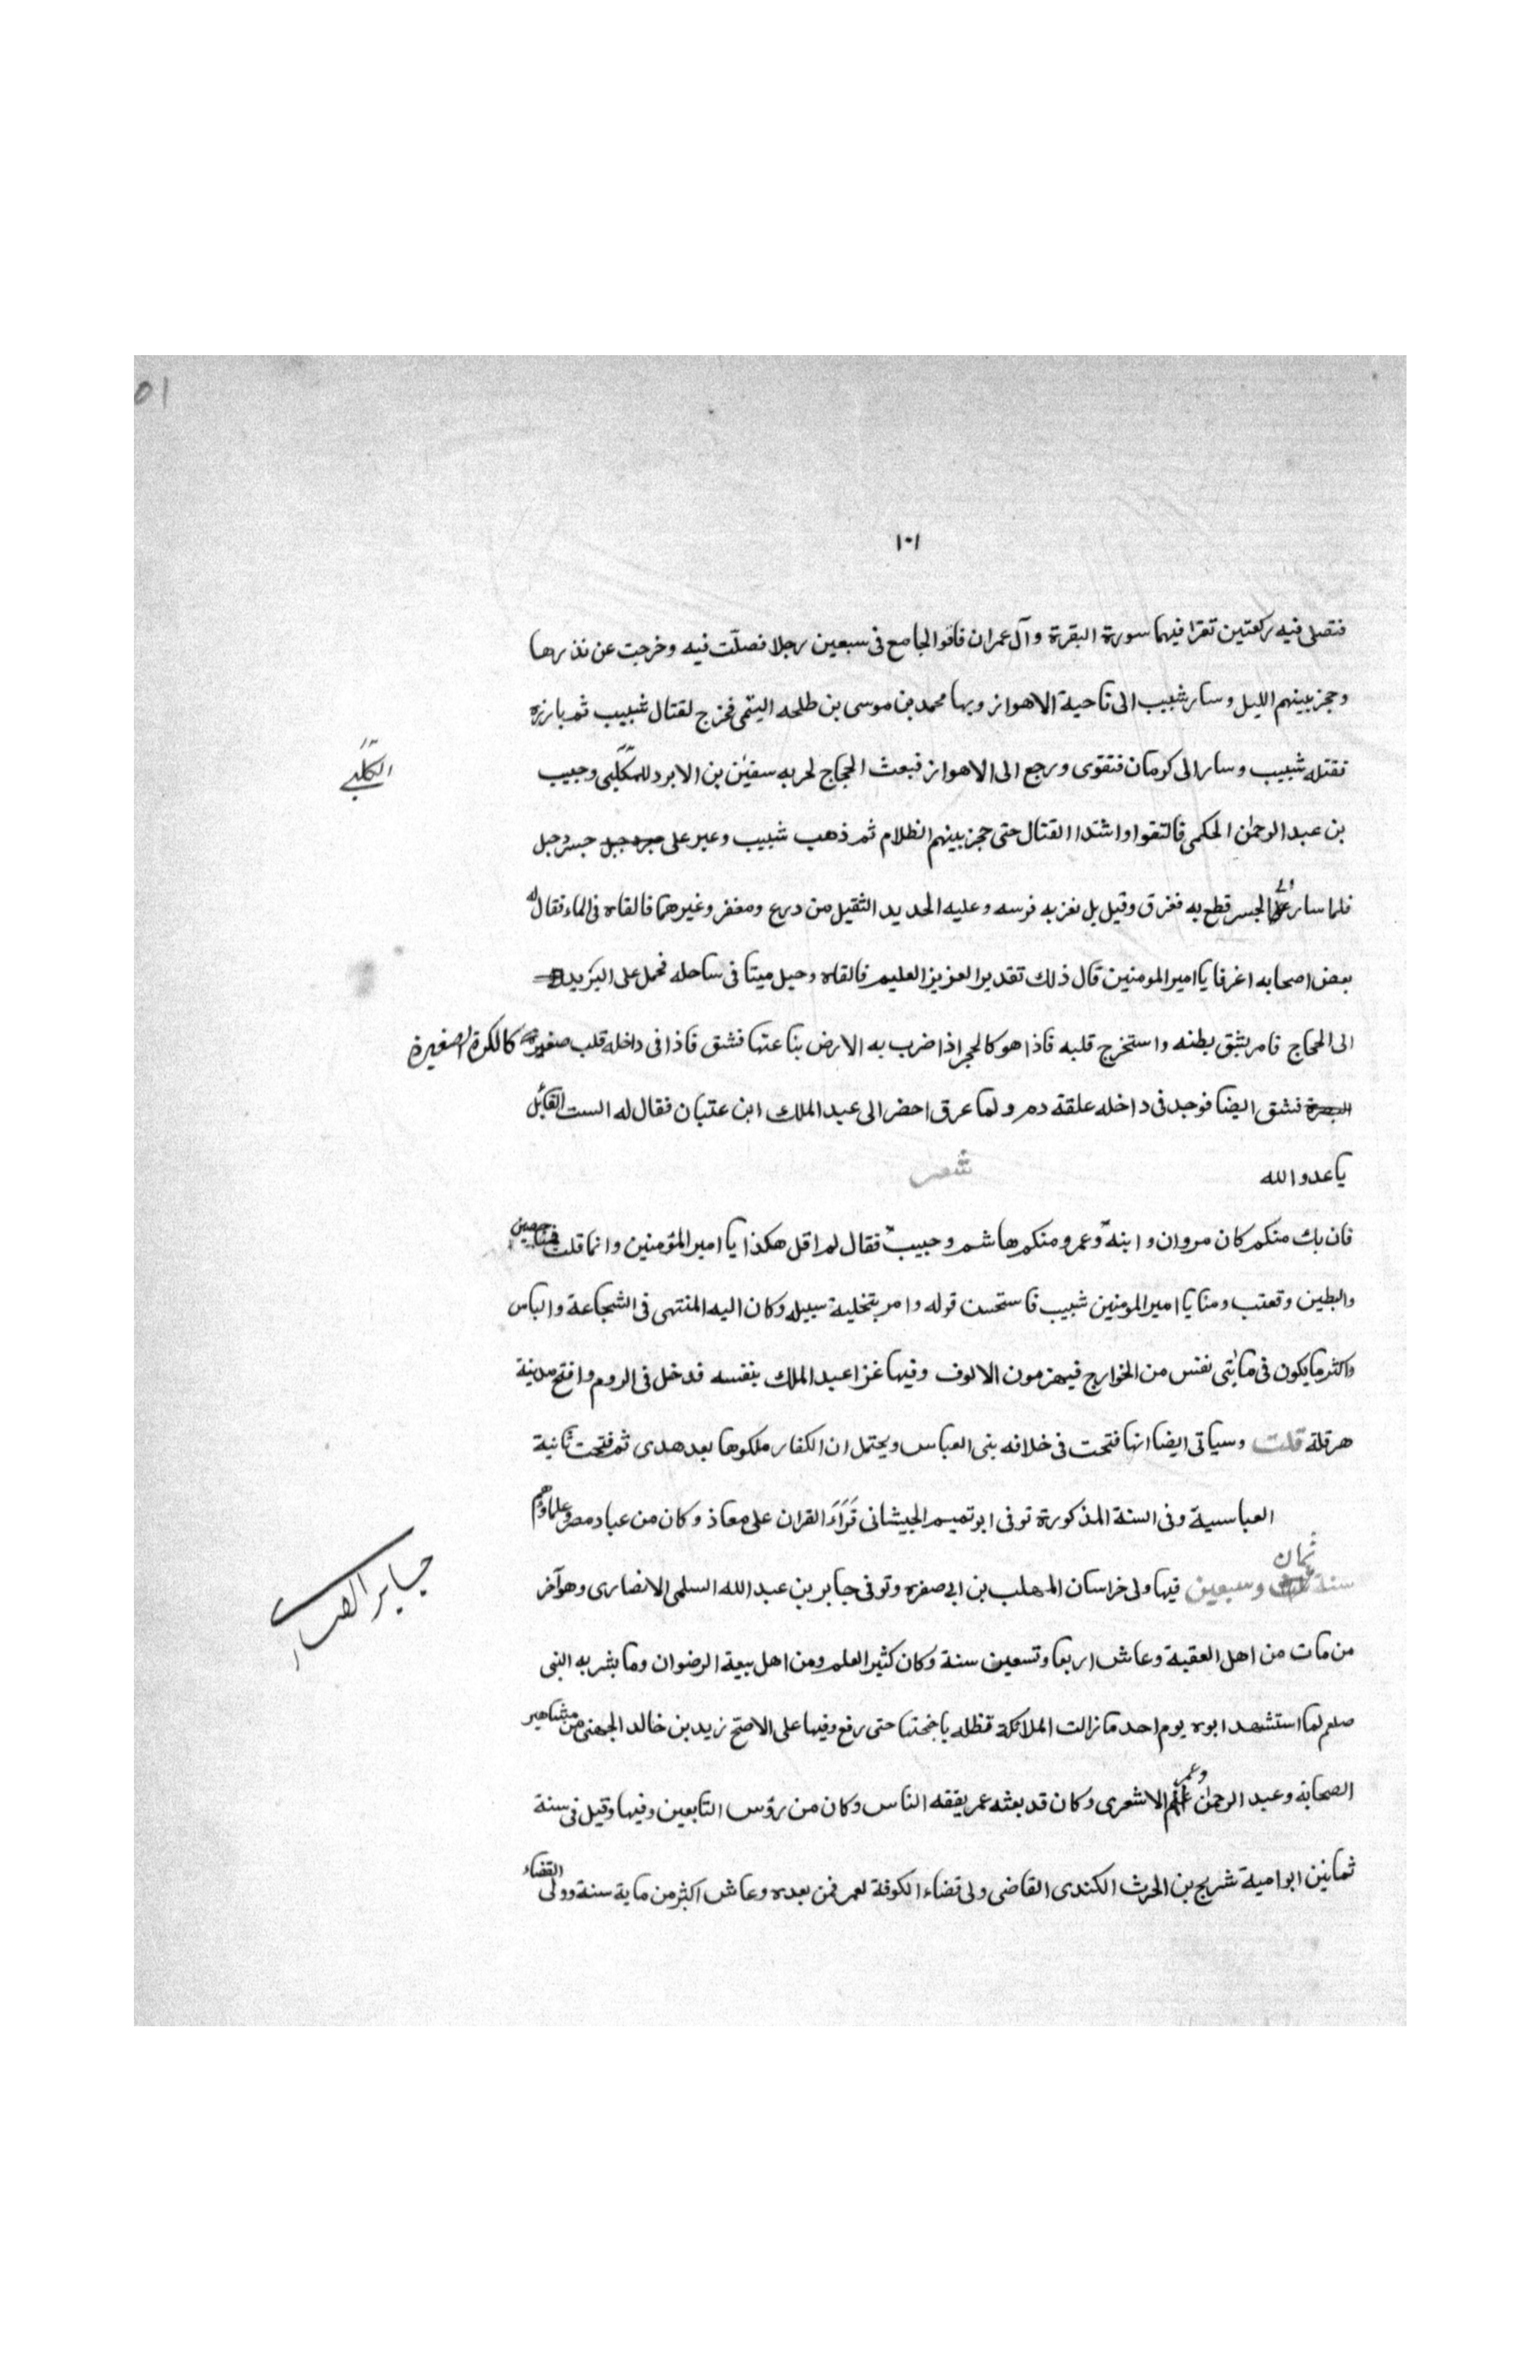 ١٠١
فتصلى فيه ركعتين تقرا فيهما سورة البقرة وآل عمران فاتوا الجامع فى سبعين رجلا فصلّت فيه وخرجت عن نذرها
وحجز بينهم الليل وسار شبيب الى ناحية الاهواز وبها محمد بن موسى بن طلحه التيمى فخرج لقتال شبيب ثم بارزه
فقتله شبيب وسار الى كرمان فتقوى ورجع الى الاهواز فبعث الحجاج لحربه سفين بن الابرد الكلبى وحبيب
الكلبى
بن عبد الرحمن الحكمى فالتقوا واشتد القتال حتى حجز بينهم الظلام ثم ذهب شبيب وعبر على جسر دجل
فلما سار على الجسر قطع به فغرق وقيل بل نفر به فرسه وعليه الحديد الثقيل من درع ومغفر وغيرهما فالقاه فى الماء فقال له
بعض اصحابه اغرقا يا امير المومنين قال ذلك تقدير العزيز العليم فالقاه دجيل ميتا فى ساحله فحمل على البريد
الى الحجاج فامر بشق بطنه واستخرج قلبه فاذا هو كالحجر اذا ضرب به الارض نبا عنها فشق فاذا فى داخله قلب صغير كالكرة الصغيرة
فشق ايضا فوجد فى داخله علقة دم ولما غرق احضر الى عبد الملك ابن عتبان فقال له الست القائل
يا عدو الله شعر
فان يك منكم كان مروان وابنه وعمرو ومنكم هاشم وحبيب فقال لم اقل هكذا يا امير المؤمنين وانما قلت فمنا حصين
والبطين وقعنب ومنا يا امير المومنين شبيب فاستحسن قوله وامر بتخلية سبيله وكان اليه المنتهى فى الشجاعة والباس
واكثر ما يكون فى مايتى نفس من الخوارج فيهزمون الالوف وفيها غزا عبد الملك بنفسه فدخل فى الروم وافتح مدينة
هرقلة قلت وسياتى ايضا انها فتحت فى خلافه بنى العباس ويحتمل ان الكفار ملكوها بعد هدى ثم فتحت ثانية
العباسية وفى السنة المذكورة توفى ابو تميم الجيشانى قراء القران على معاذ وكان من عباد مصر وعلماوهم
سنة ثمان وسبعين فيها ولى خراسان المهلب بن ابى صفره وتوفى جابر بن عبد الله السلمى الانصارى وهو آخر
من مات من اهل العقبة وعاش اربعا وتسعين سنة وكان كثير العلم ومن اهل بيعة الرضوان وما بشر به النبى
صلعم لما استشهد ابوه يوم احد ما زالت الملائكة تظله باجنحتها حتى رفع وفيها على الاصح زيد بن خالد الجهنى من مشاهير
الصحابة وعبد الرحمن غنم الاشعرى وكان قد بعثه عمر يفقه الناس وكان من رؤس التابعين وفيها وقيل فى سنة
ثمانين ابو امية شريح بن الحرث الكندى القاضى ولى قضاء الكوفة لعمر فمن بعده وعاش اكثر من ماية سنة وولى القضاء